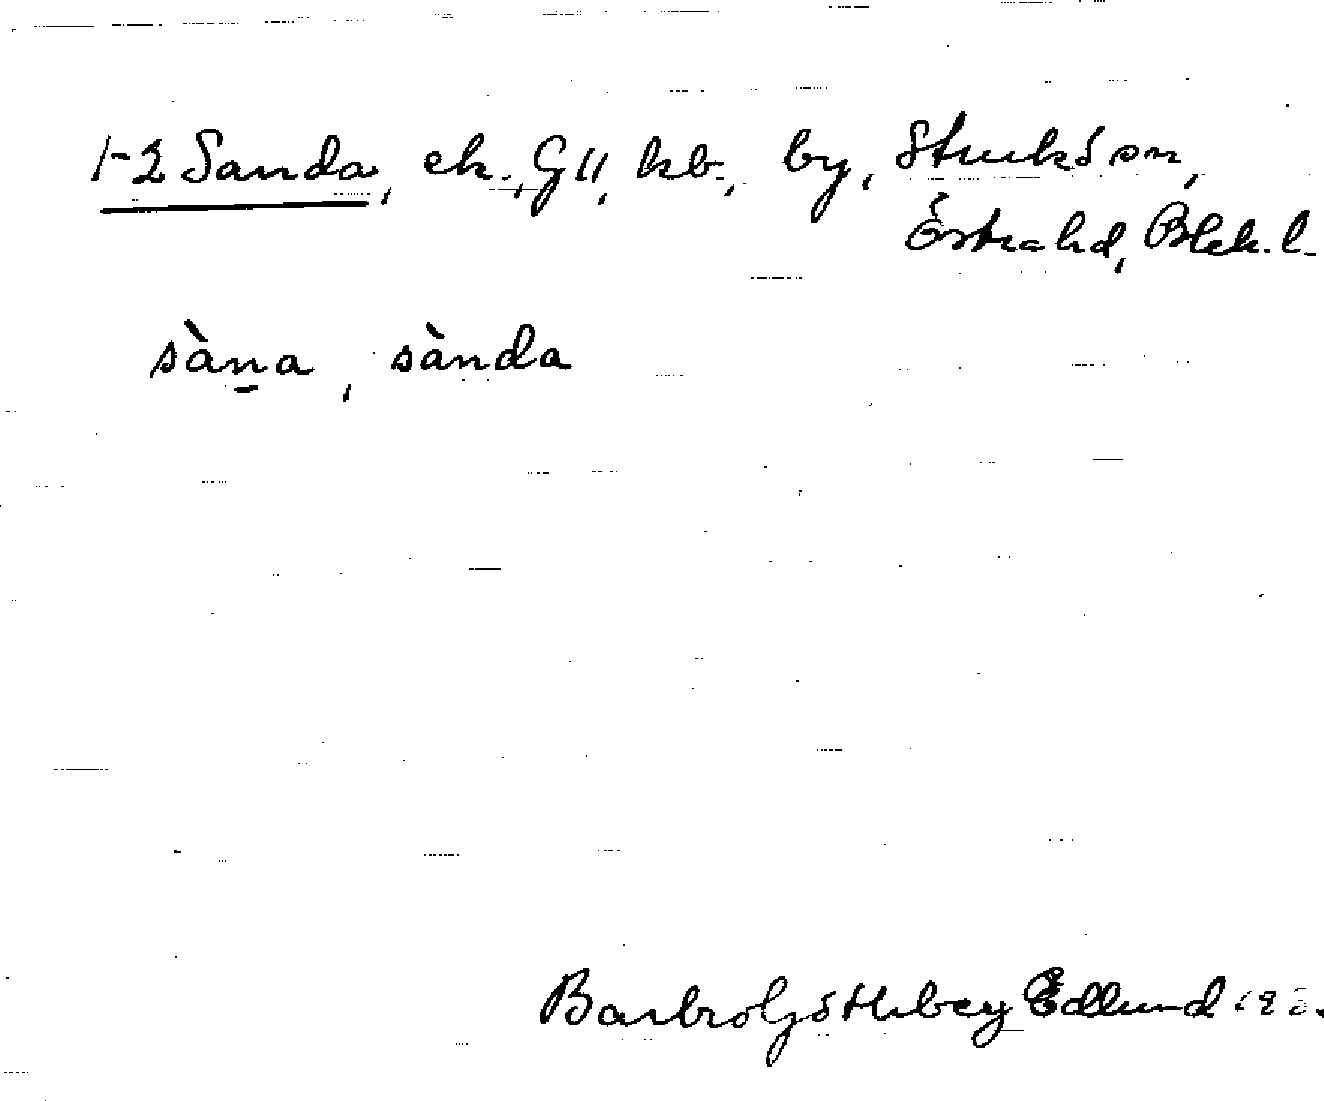 1-2 Sanda, ek., G11, kb., by, Sturkö sn,
Östra hd, Blek. l.
sàn̲a, sànda
Barbro Göthberg Edlund